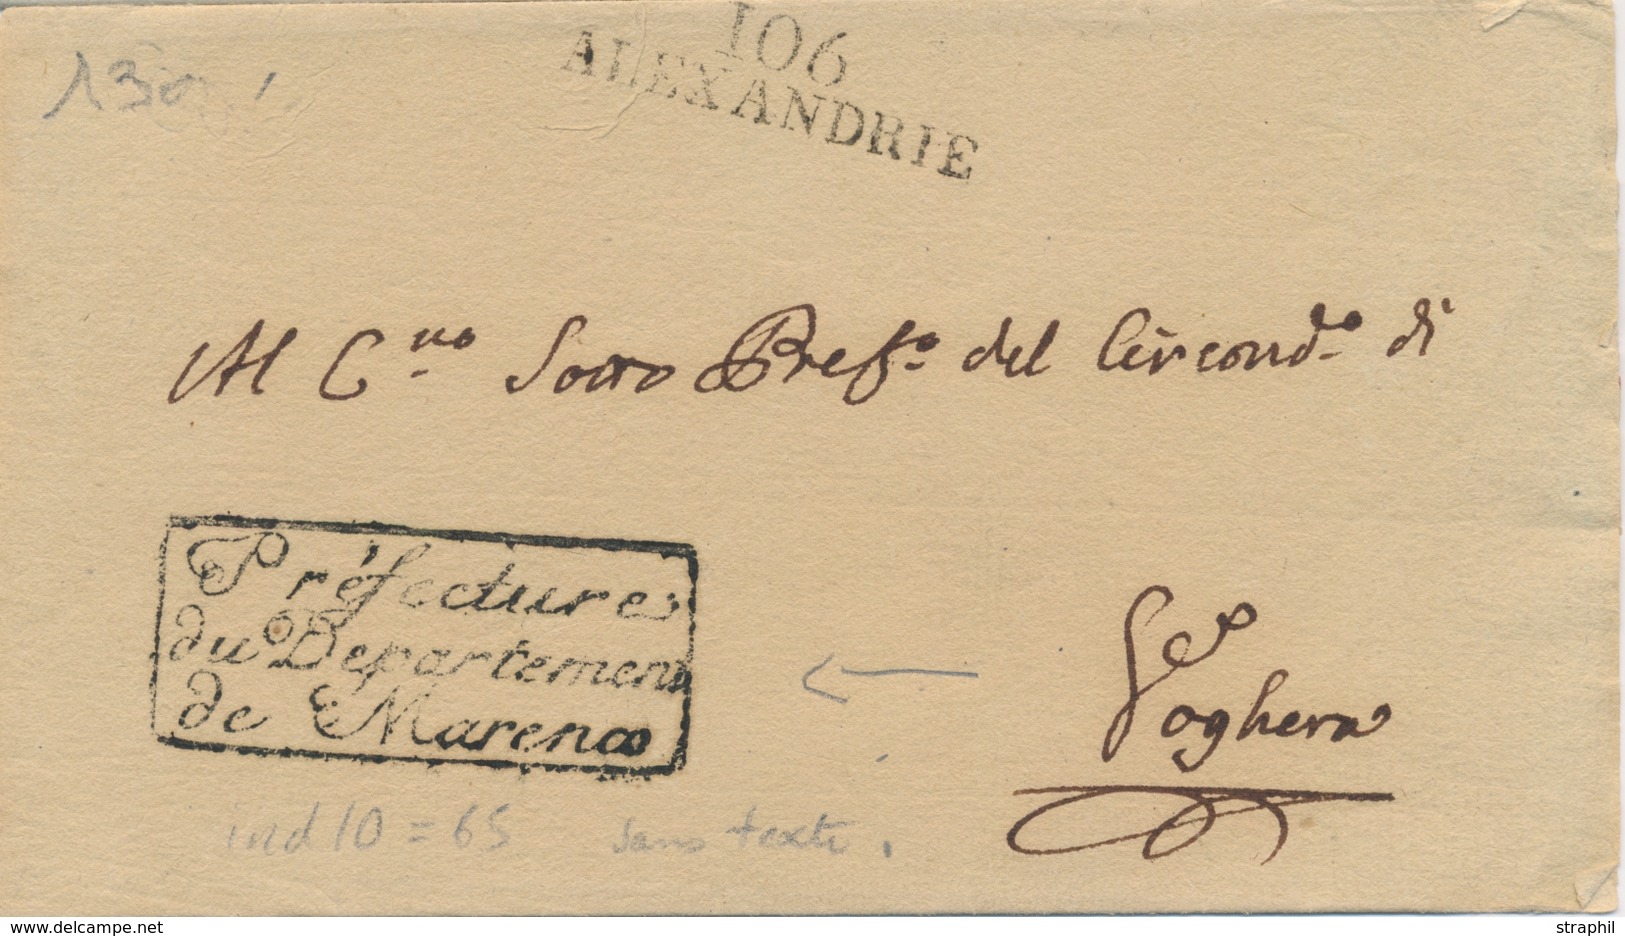 106
ALEXANDRIE
130
Al C.no Sotto Pref.o del Circond.o di
Voghera
Préfecture
du Departement
de Marengo
ind 10 = 65 sans texte.
delcampe.net
straphil